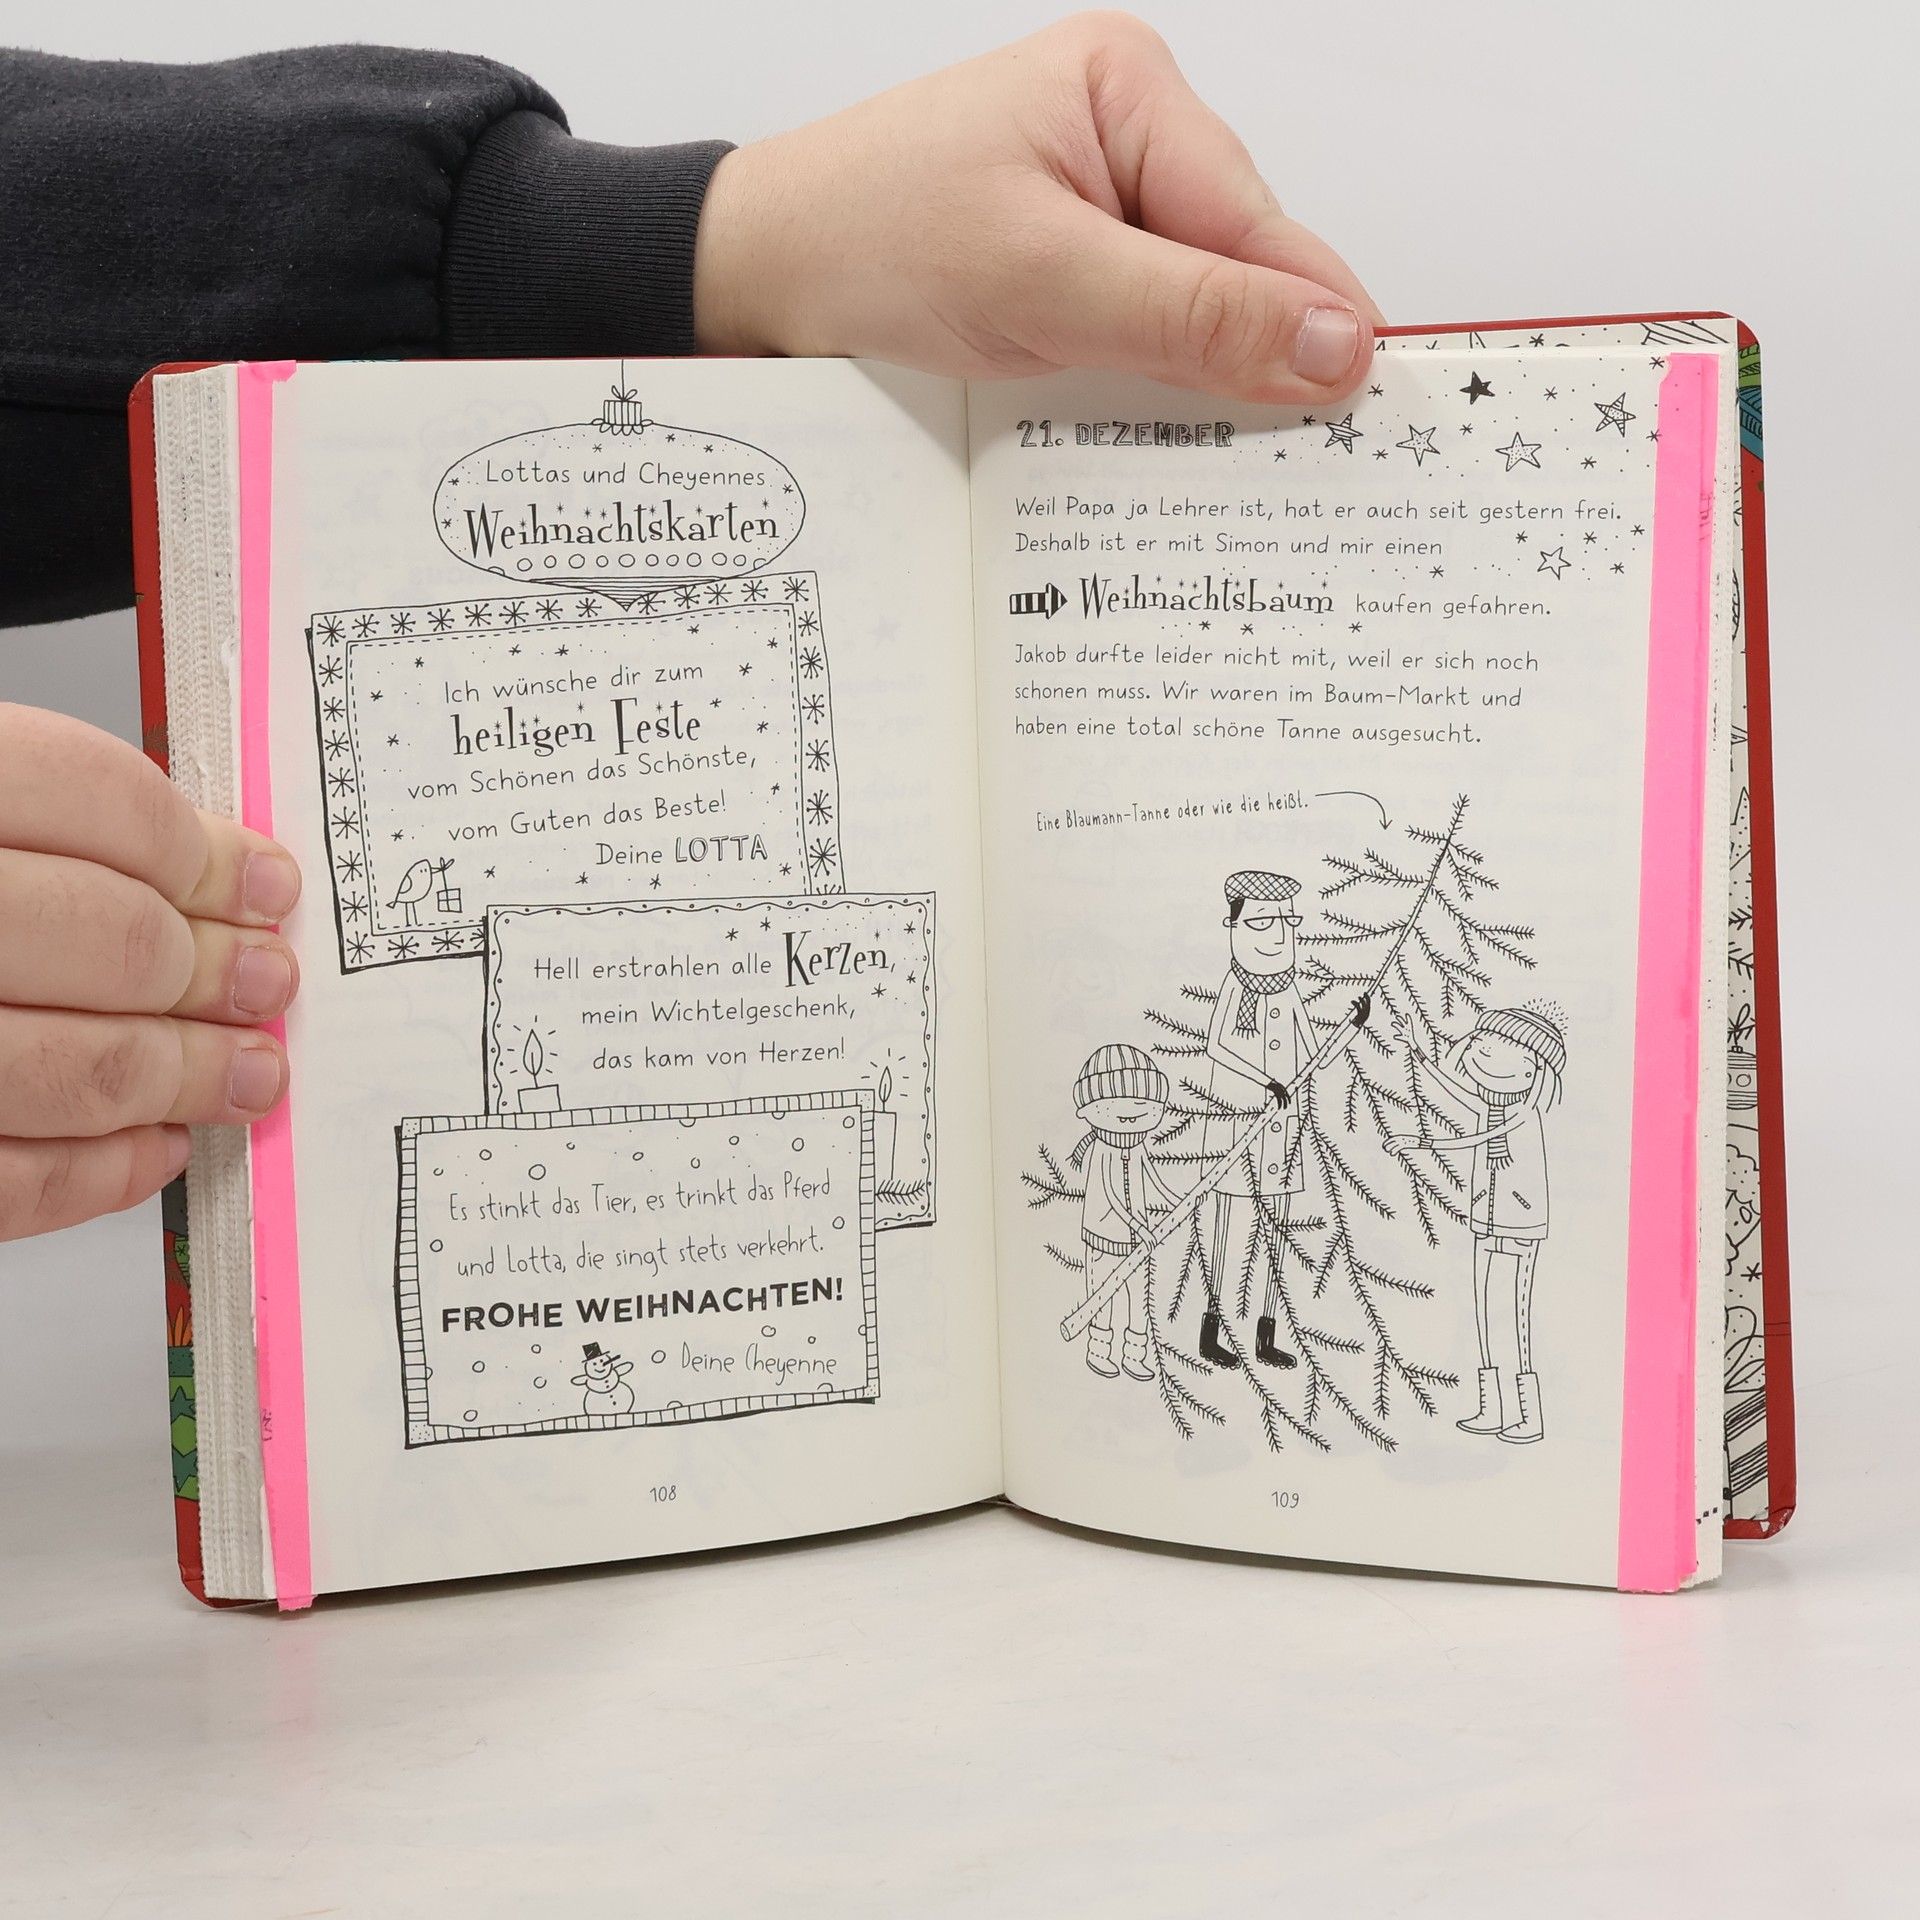 Lottas und Cheyennes
Weihnachtskarten
Ich wünsche dir zum
heiligen Feste
vom Schönen das Schönste,
vom Guten das Beste!
Deine LOTTA
Hell erstrahlen alle Kerzen,
mein Wichtelgeschenk,
das kam von Herzen!
Es stinkt das Tier, es trinkt das Pferd
und Lotta, die singt stets verkehrt.
FROHE WEIHNACHTEN!
Deine Cheyenne
108
21. DEZEMBER
Weil Papa ja Lehrer ist, hat er auch seit gestern frei.
Deshalb ist er mit Simon und mir einen
Weihnachtsbaum kaufen gefahren.
Jakob durfte leider nicht mit, weil er sich noch
schonen muss. Wir waren im Baum-Markt und
haben eine total schöne Tanne ausgesucht.
Eine Blaumann-Tanne oder wie die heißt.
109